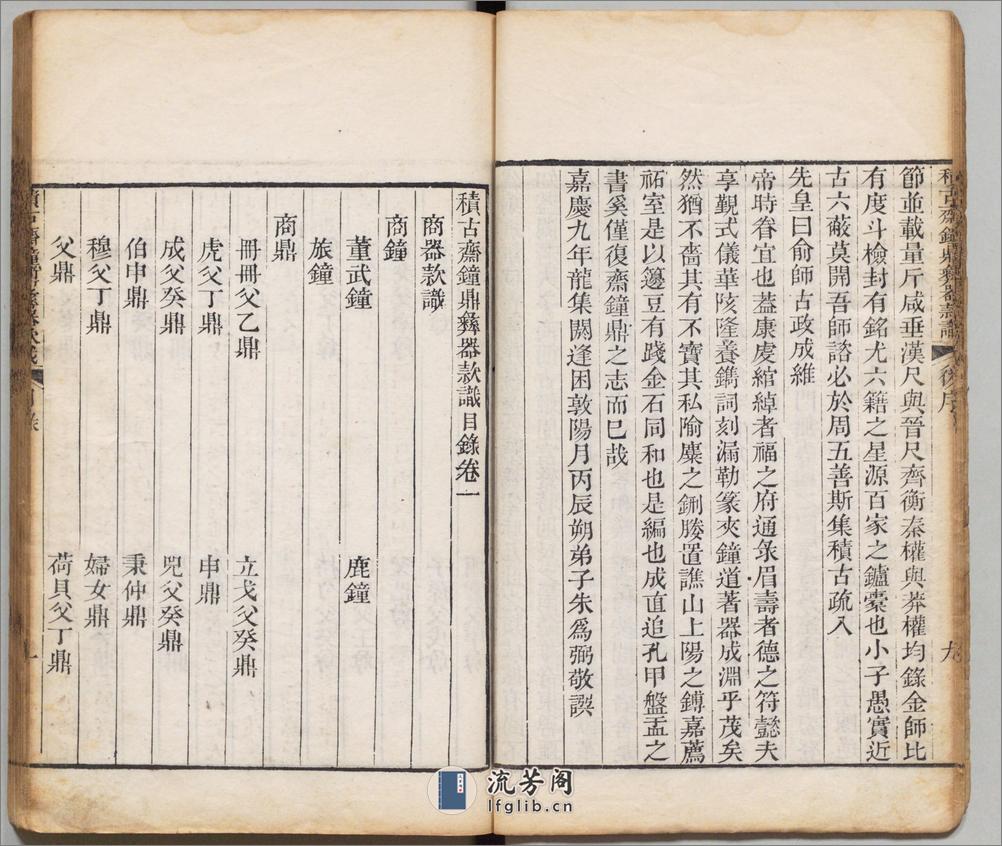 積古齋鐘鼎彝器款識
後序
九
節並載量斤咸垂漢尺與晉尺齊衡秦權與莽權均錄金師比
有度斗檢封有銘尤六籍之星源百家之鑪橐也小子愚實近
古六蔽莫開吾師諮必於周五善斯集積古疏入
先皇曰俞師古政成維
帝時眷宜也葢康虔綰綽者福之府通彔眉壽者德之符懿夫
享觐式儀華陔隆養鐫詞刻漏勒篆夾鐘道著器成淵乎茂矣
然猶不嗇其有不寶其私喻麋之鉶媵置譙山上陽之鎛嘉薦
祏室是以籩豆有踐金石同和也是編也成直追孔甲盤盂之
書奚僅復齋鐘鼎之志而已哉
嘉慶九年龍集閼逢困敦陽月丙辰朔弟子朱爲弼敬譔
積古齋鐘鼎彝器款識目錄卷一
商器款識
商鐘
董武鐘
鹿鐘
旅鐘
商鼎
冊冊父乙鼎
立戈父癸鼎
虎父丁鼎
申鼎
成父癸鼎
兕父癸鼎
伯申鼎
秉仲鼎
穆父丁鼎
婦女鼎
父鼎
荷貝父丁鼎
積古齋鐘鼎彝器款識
目錄
一
流芳阁
lfglib.cn